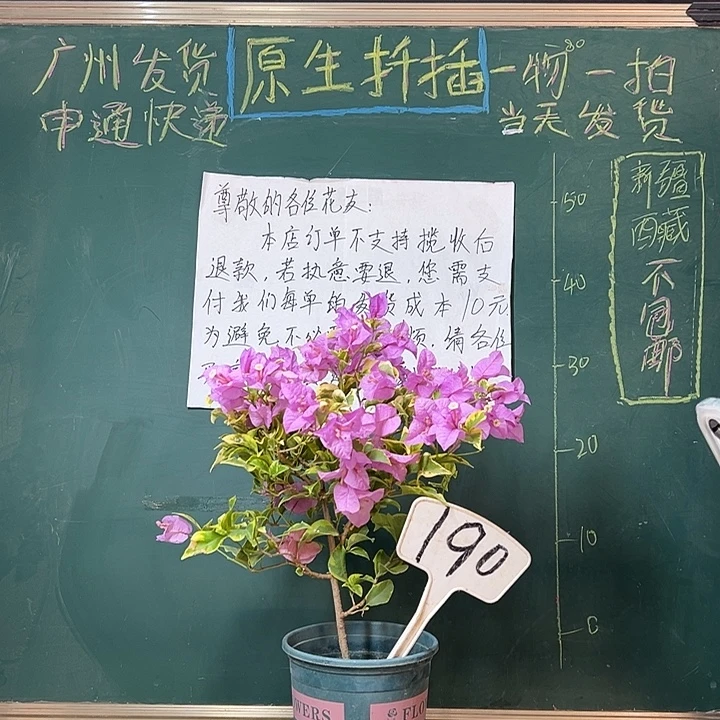 广州发货
申通快递
原生扦插
一物一拍
当天发货
新疆
西藏
不包邮
尊敬的各位花友:
本店订单不支持揽收后
退款,若执意要退,您需支
付我们每单的发货成本10元
为避免不必 烦,请各位
50
40
30
20
10
0
190
WERS
& FLO